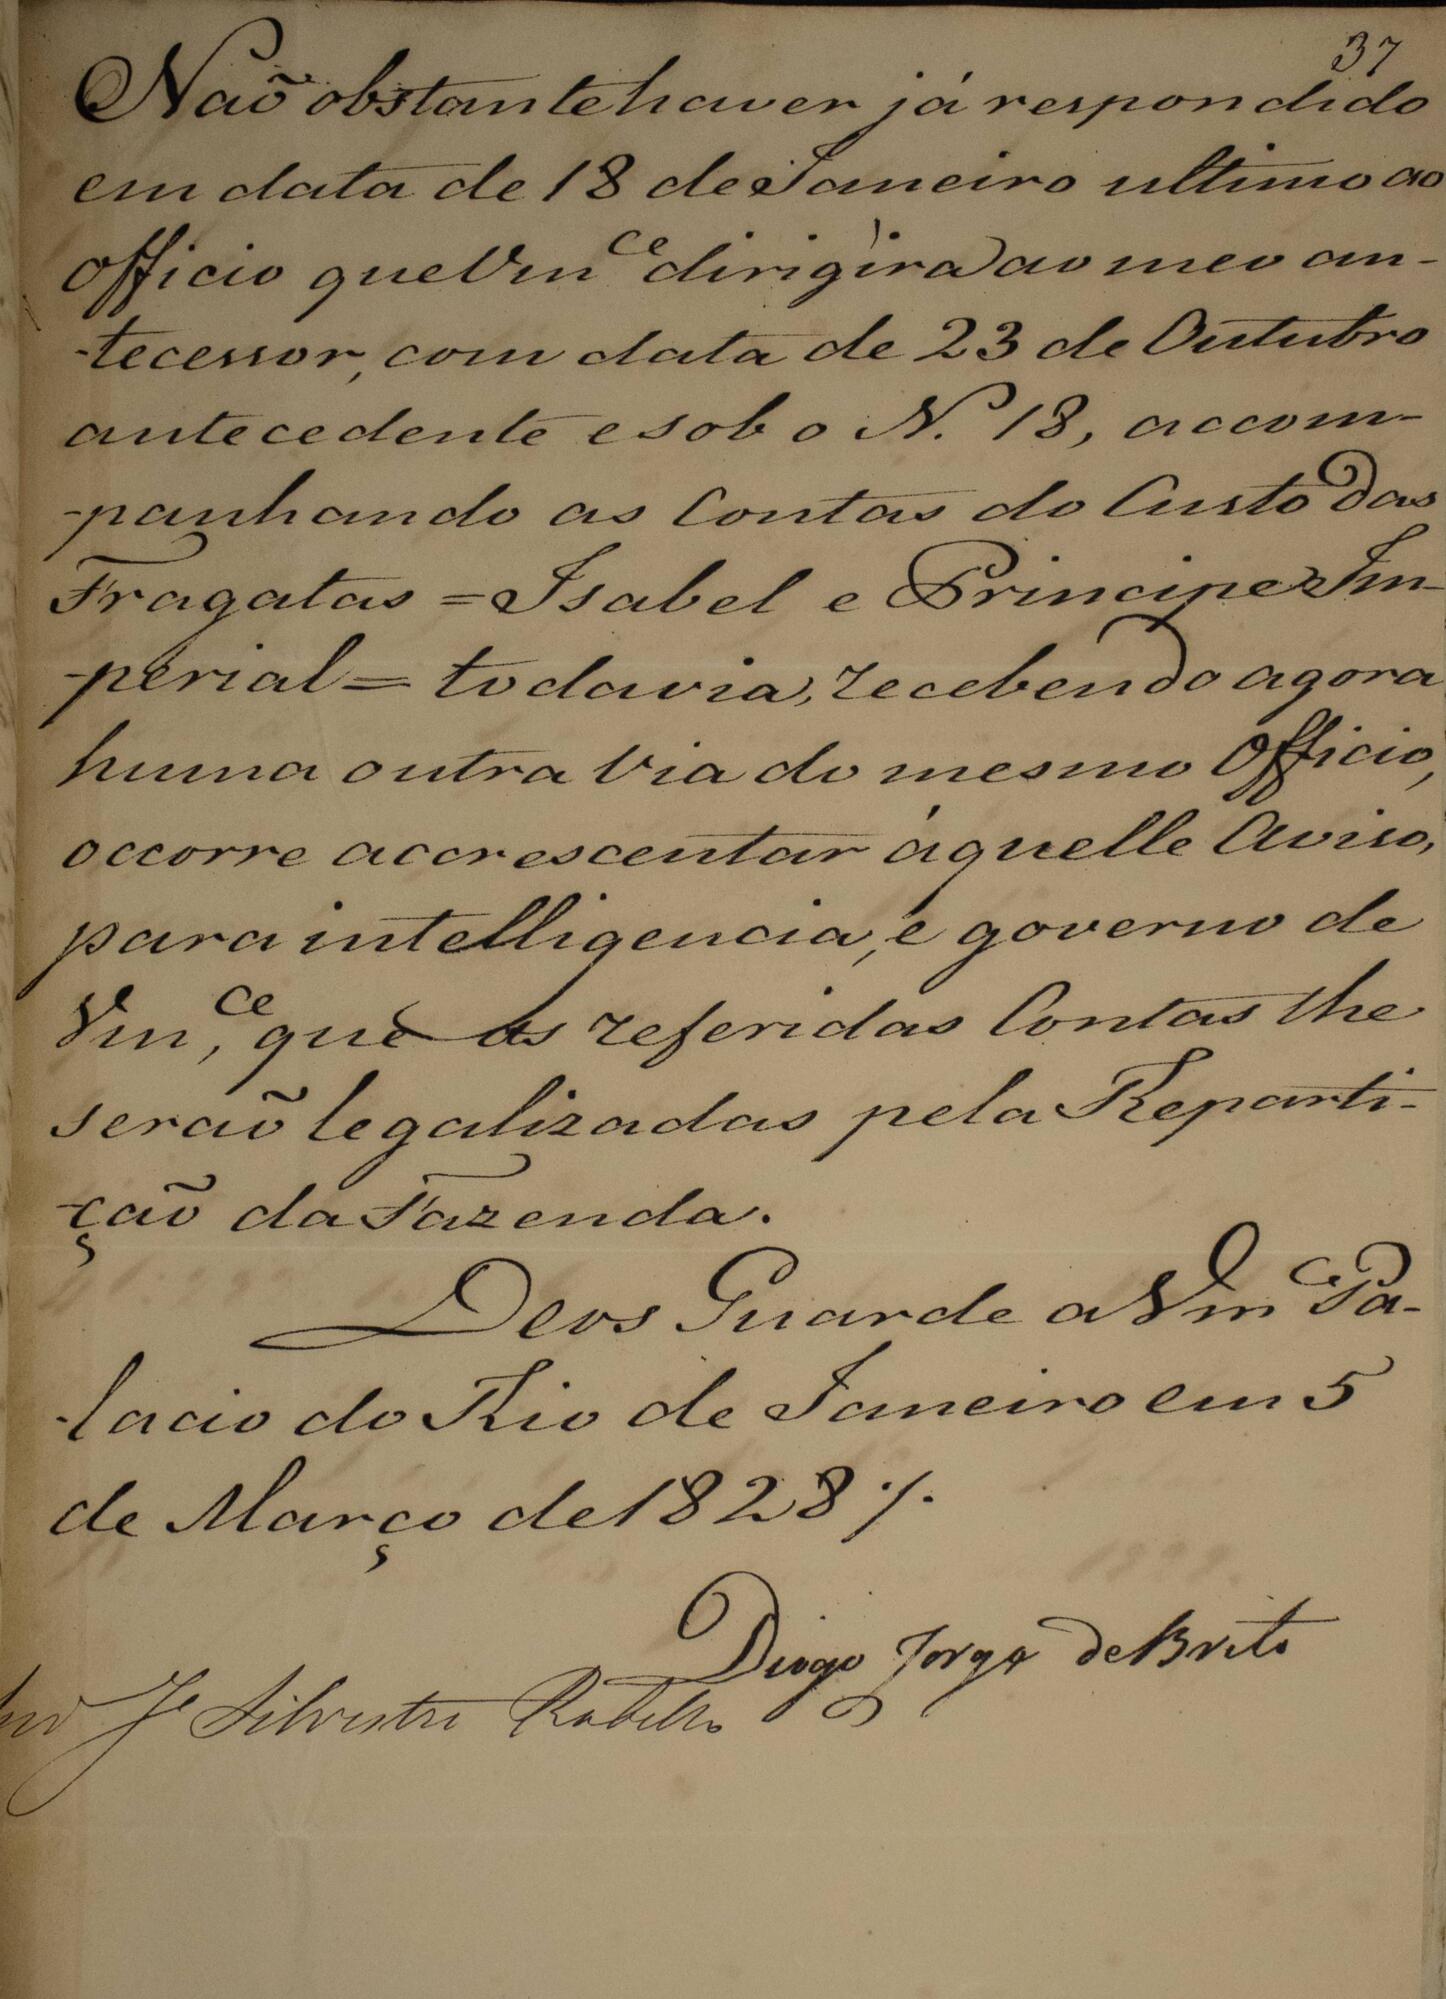 37
Naõ obstante haver já respondido
em data de 18 de Janeiro ultimo ao
Officio que Vm.ce dirigìra ao meo an-
-tecessor, com data de 23 de Outubro
antecedente e sob o N.º 18, accom-
-panhando as Contas do Custo das
Fragatas = Isabel e Principe Im-
-perial = todavia, recebendo agora
huma outra via do mesmo Officio,
occorre accrescentar áquelle Aviso,
para intelligencia, e governo de
Vm.ce, que as referidas Contas lhe
seraõ legalizadas pela Reparti-
-çaõ da Fazenda.
Deos Guarde a Vm.ce Pa-
-lacio do Rio de Janeiro em 5
de Março de 1828 ./.
Diogo Jorge de Brito
Je Silvestre Rebello